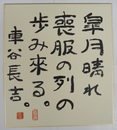 皐月晴れ
喪服の列の
歩み来る。
車谷長吉。